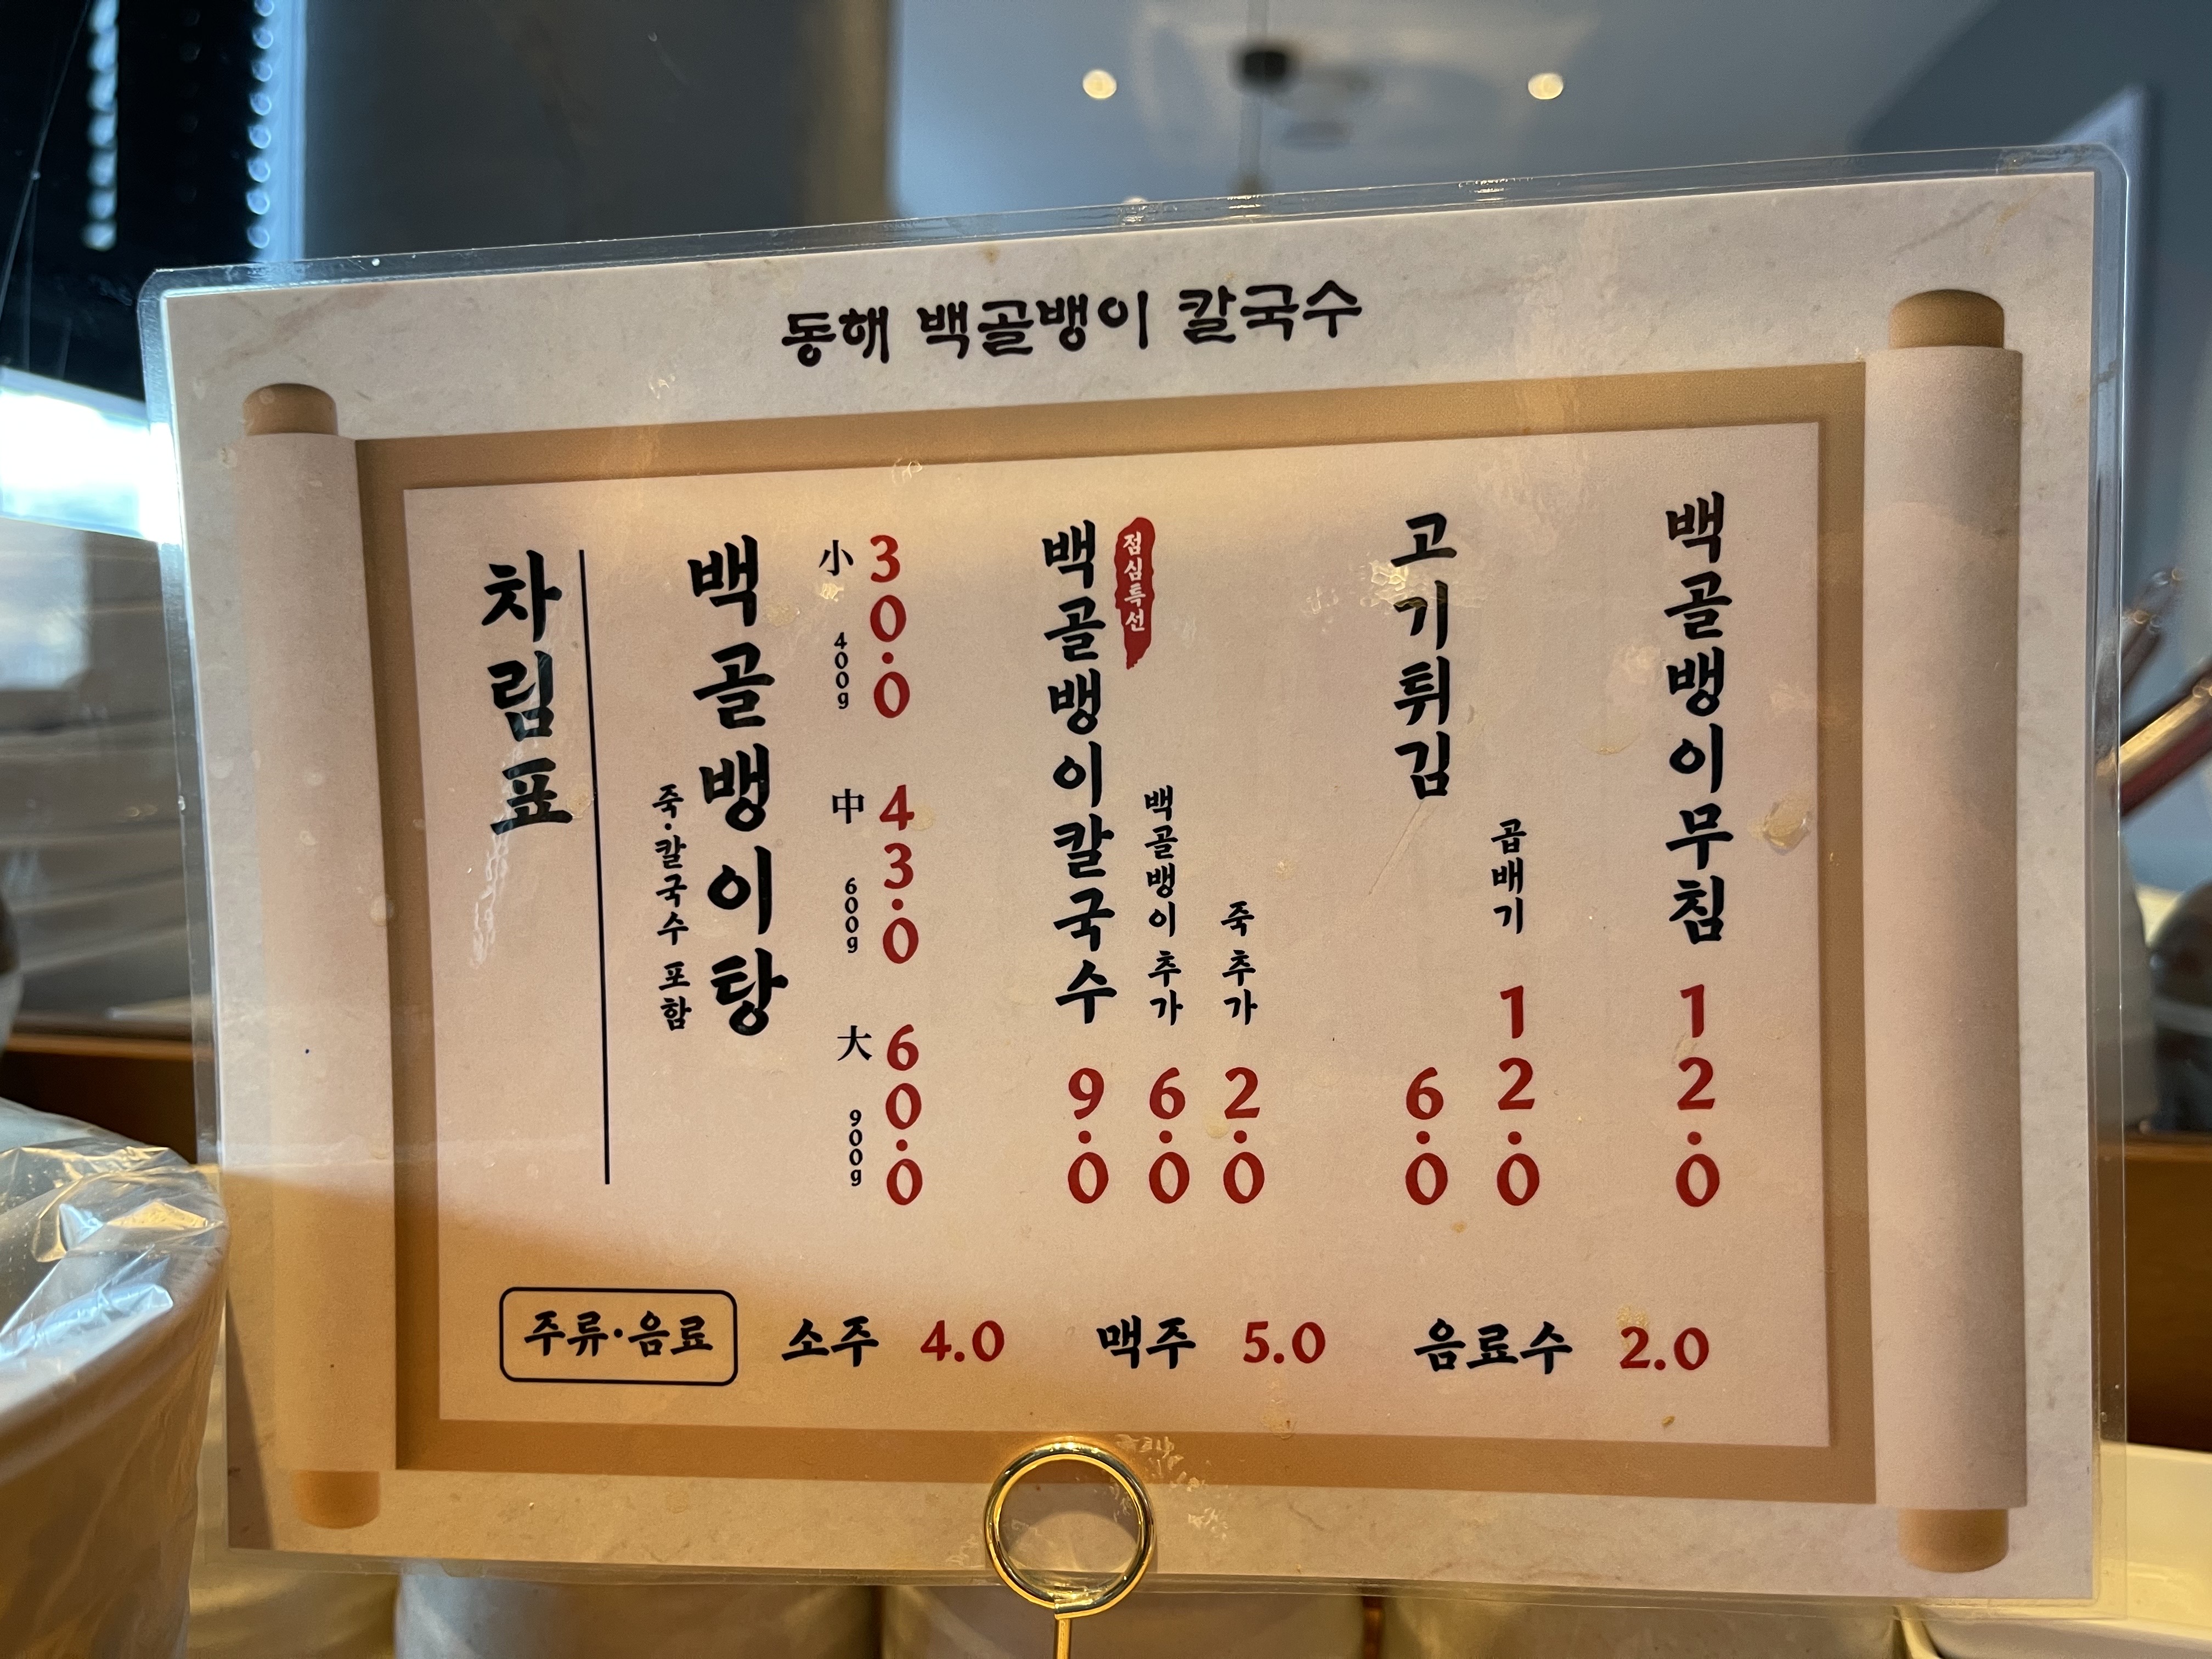 동해 백골뱅이 칼국수
차림표
백골뱅이탕
죽·칼국수 포함
小 400g 30.0
中 600g 43.0
大 900g 60.0
점심특선
백골뱅이칼국수 9.0
백골뱅이 추가 6.0
죽 추가 2.0
고기튀김 6.0
곱배기 12.0
백골뱅이무침 12.0
주류·음료 소주 4.0 맥주 5.0 음료수 2.0